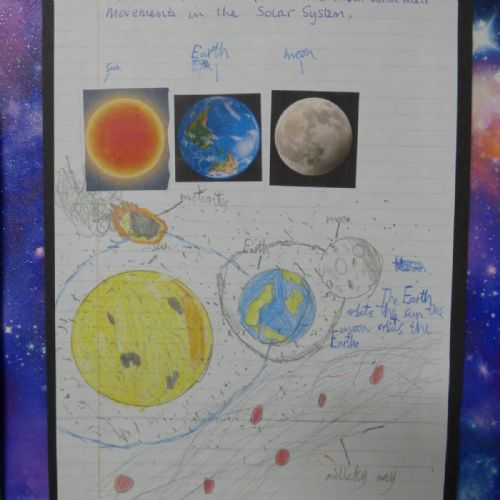 movements in the Solar System.
Sun
Earth
Earth
moon
meteorite
sun
Earth
moon
The Earth
orbits the sun the
moon orbits the
Earth
millcky way